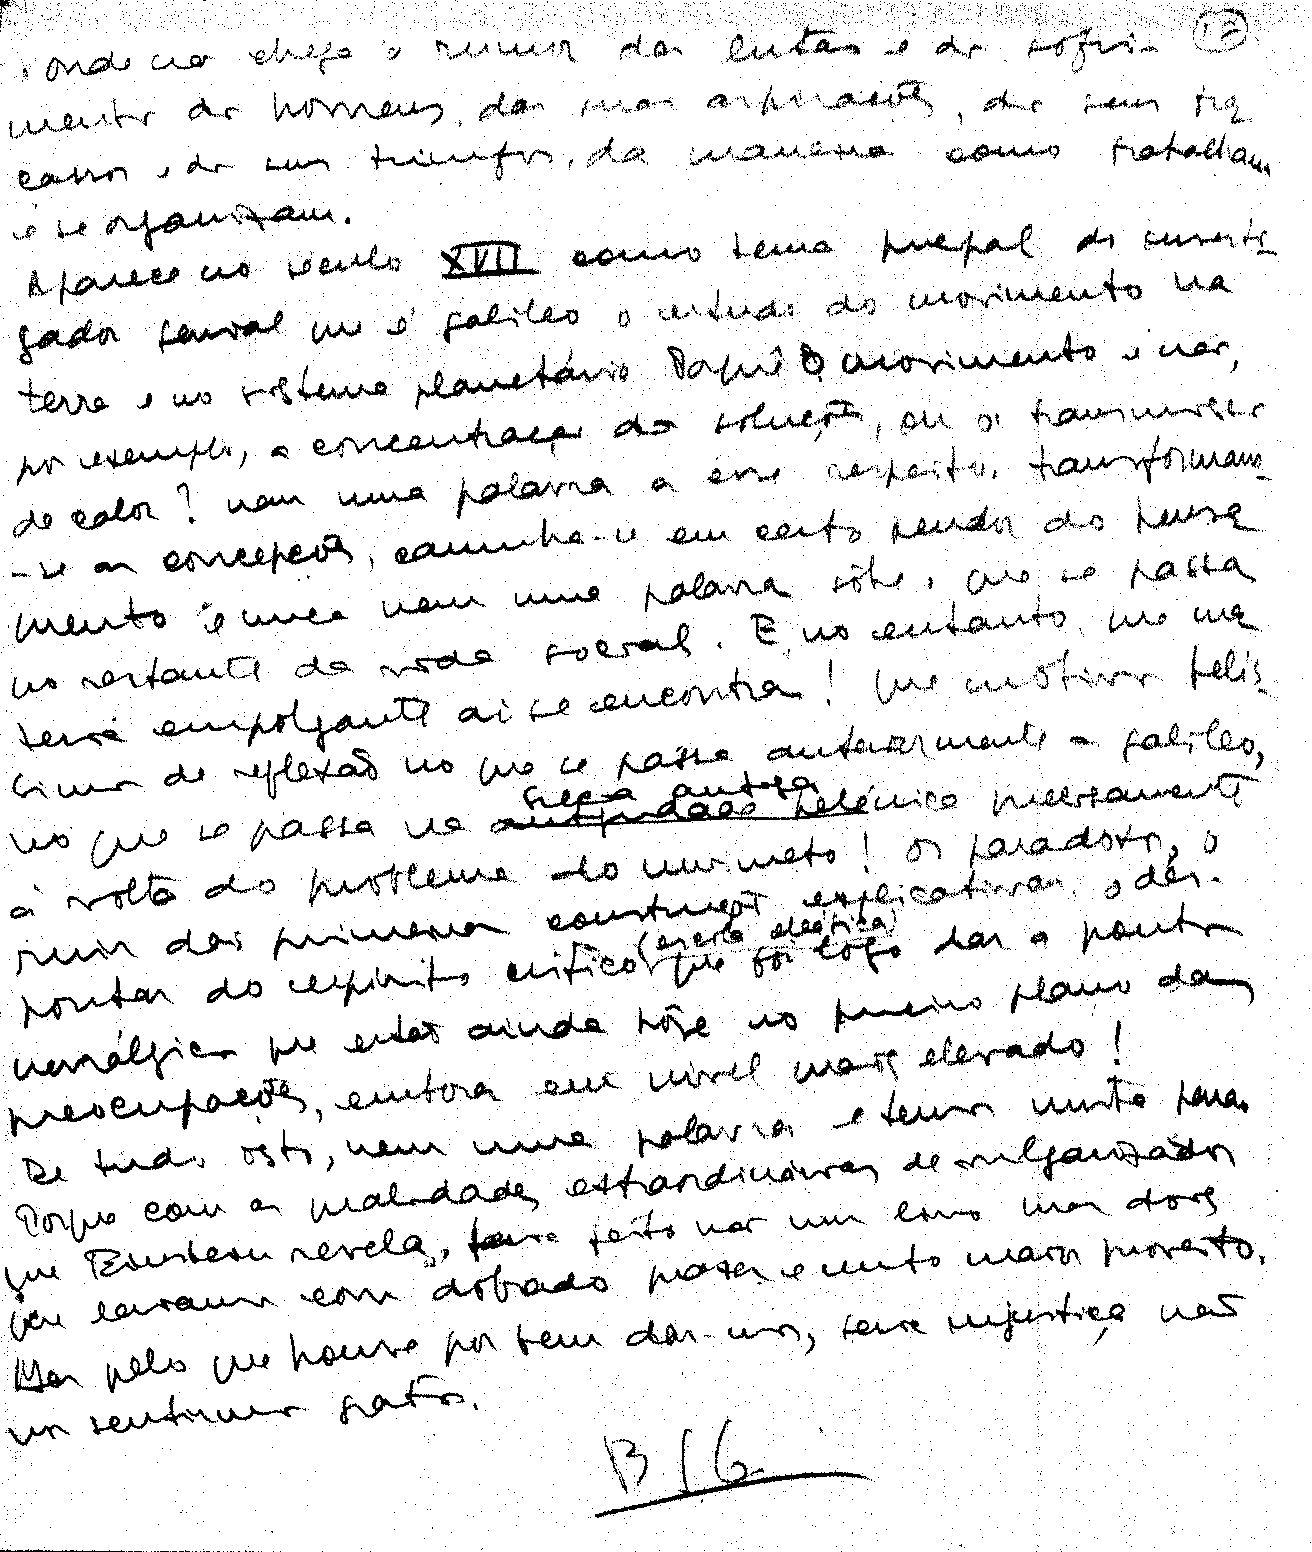 onde não chega o rumor das lutas e do sofri- 13
mento dos homens, das suas aspirações, dos seus fra
cassos e dos seus triunfos, da maneira como trabalham
e se organizam.
Aparece no século XVII como tema principal do investi-
gador genial que é Galileo o estudo do movimento na
terra e no sistema planetário. Porquê o movimento e não,
por exemplo, a concentração das soluções, ou a transmissão
do calor? nem uma palavra a esse respeito. transformam-
-se as concepções, caminha-se em certo pendor do pensa
mento e nunca nem uma palavra sôbre o que se passa
no restante da vida social. E, no entanto, que ma
téria empolgante aí se encontra! que motivos belís-
simos de reflexão no que se passa anteriormente a Galileo,
Grécia antiga
no que se passa na antiguidade helénica precisamente
à volta do problema do movimento! Os paradoxos, o
ruir das primeiras construções explicativas, o des-
(escola eleática)
pontar do espírito crítico que foi logo dar a pontos
nevrálgicos que estão ainda hoje no primeiro plano das
preocupações, embora em nível mais elevado!
De tudo isto, nem uma palavra e temos muita pena.
Porque com as qualidades extraordinárias de vulgarizador
que Einstein revela, teria feito não um livro mas dois
que leríamos com dobrado prazer e muito maior proveito.
Mas pelo que houve por bem dar-nos, seria injustiça não
nos sentirmos gratos.